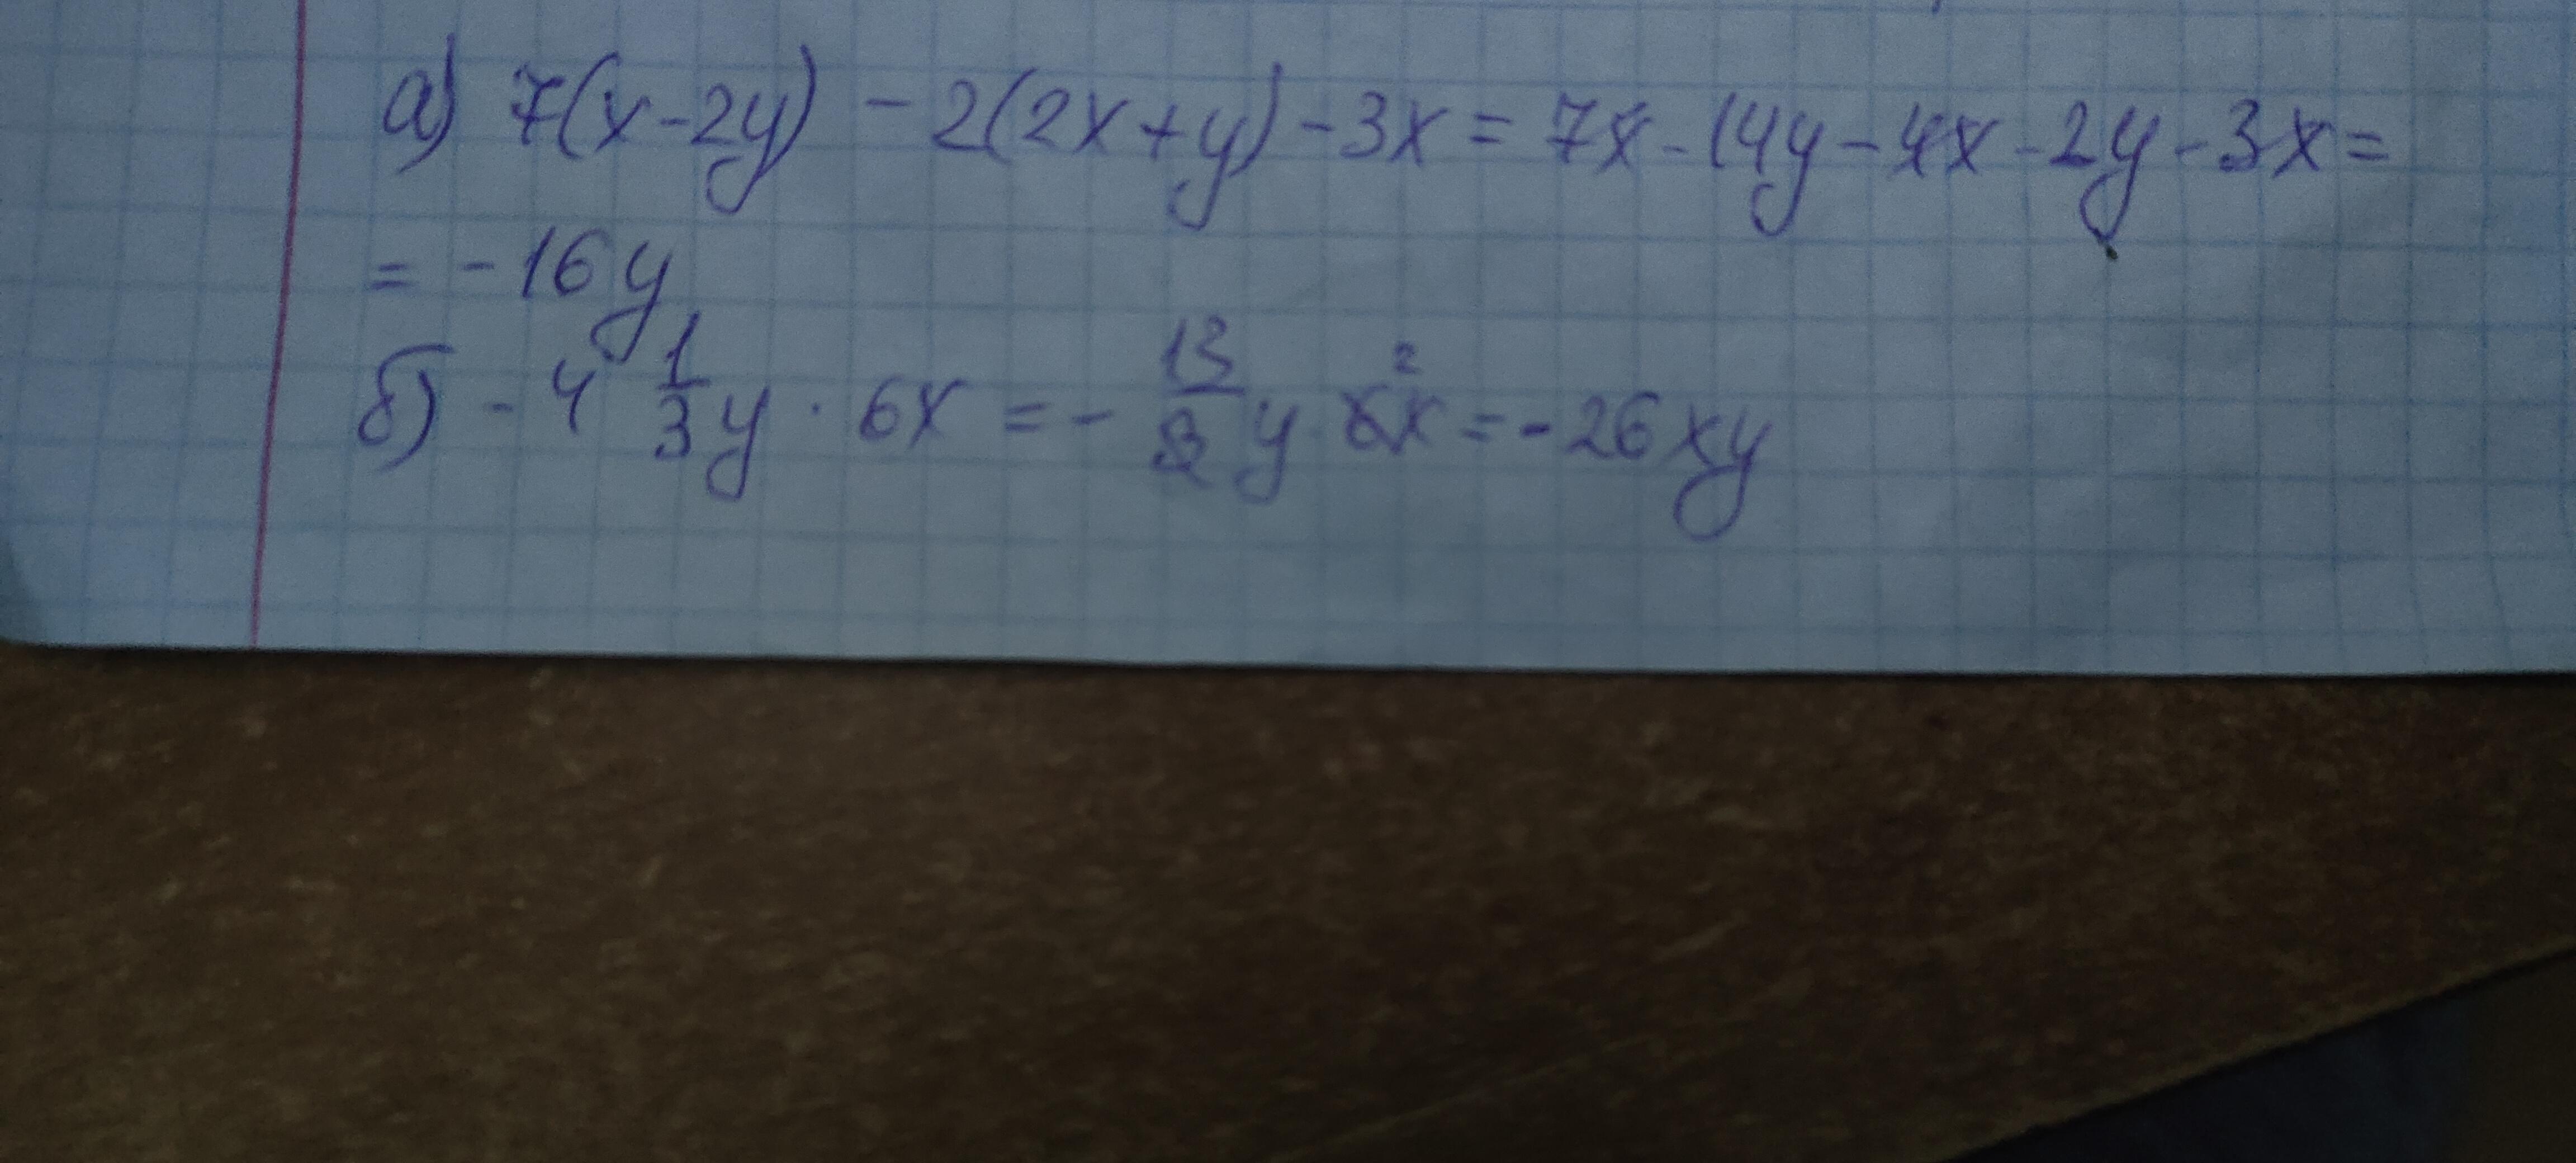 а) 7(x-2y) - 2(2x+y) - 3x = 7x - 14y - 4x - 2y - 3x =
= -16y
б) - 4 1/3 y · 6x = - 13/3 y · 6x² = - 26xy